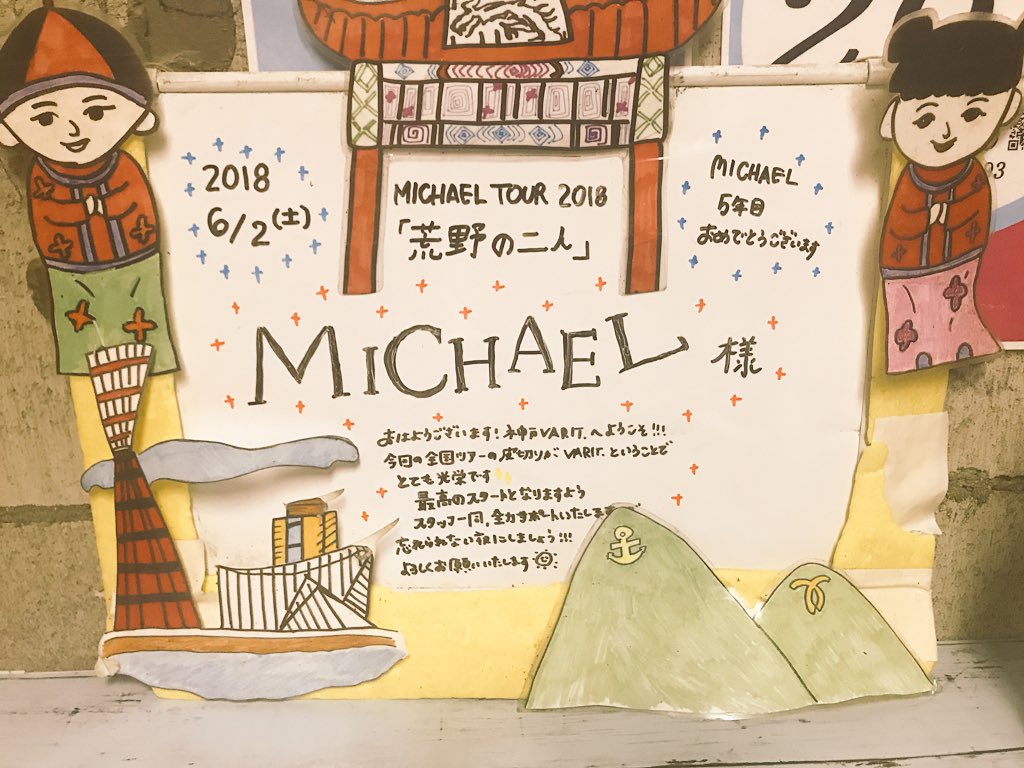 2018
6/2(土)
MICHAEL TOUR 2018
「荒野の二人」
MICHAEL
5年目
おめでとうございます
MICHAEL 様
おはようございます！神戸VARIT.へようこそ!!!
今回の全国ツアーの皮切りがVARIT.ということで
とても光栄です
最高のスタートとなりますよう
スタッフ一同、全力サポートいたします
忘れられない1日にしましょう!!!
よろしくお願いいたします
20
03